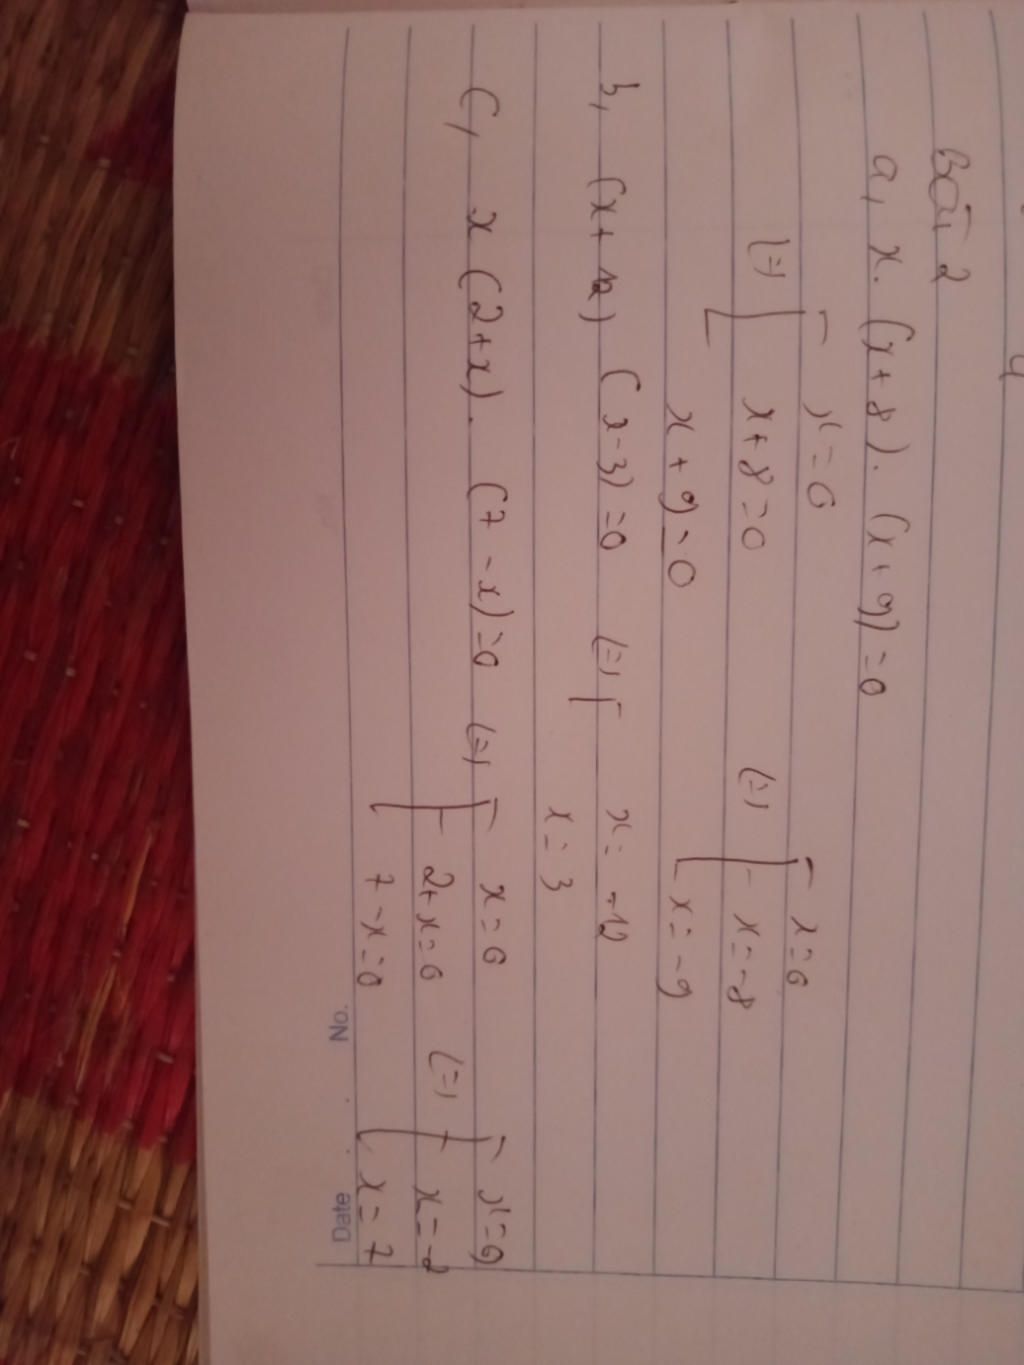 Bài 2
a, x. (x+8). (x+9)=0
x=0 x=0
(=) x+8=0 (=) x=-8
x+9=0 x=-9
b, (x+12) (x-3)=0 (=) x= -12
x=3
c, x(2+x). (7-x)=0 (=) x=0 x=0
2+x=0 (=) x=-2
7-x=0 x=7
No.
Date